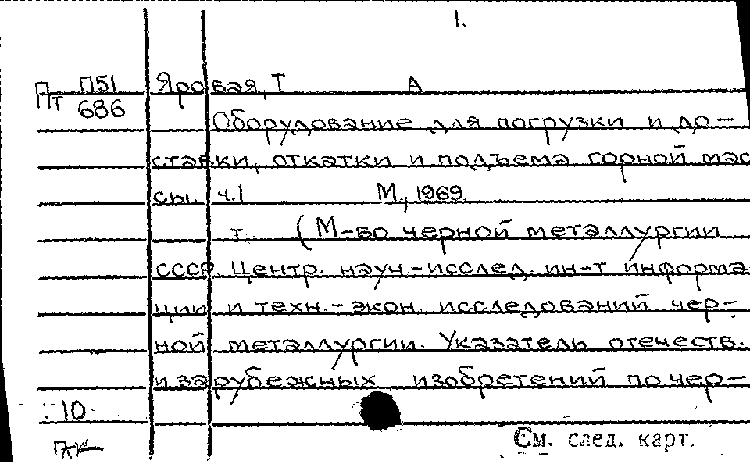 1.
Пт П51 Яровая, Т А
686 Оборудование для погрузки и до-
ставки, откатки и подъема горной мас
сы. ч.1 М., 1969.
т. (М-во черной металлургии
СССР. Центр. науч.-исслед. ин-т информа
ции и техн.-экон. исследований чер-
ной металлургии. Указатель отечеств.
и зарубежных изобретений по чер-
10
См. след. карт.